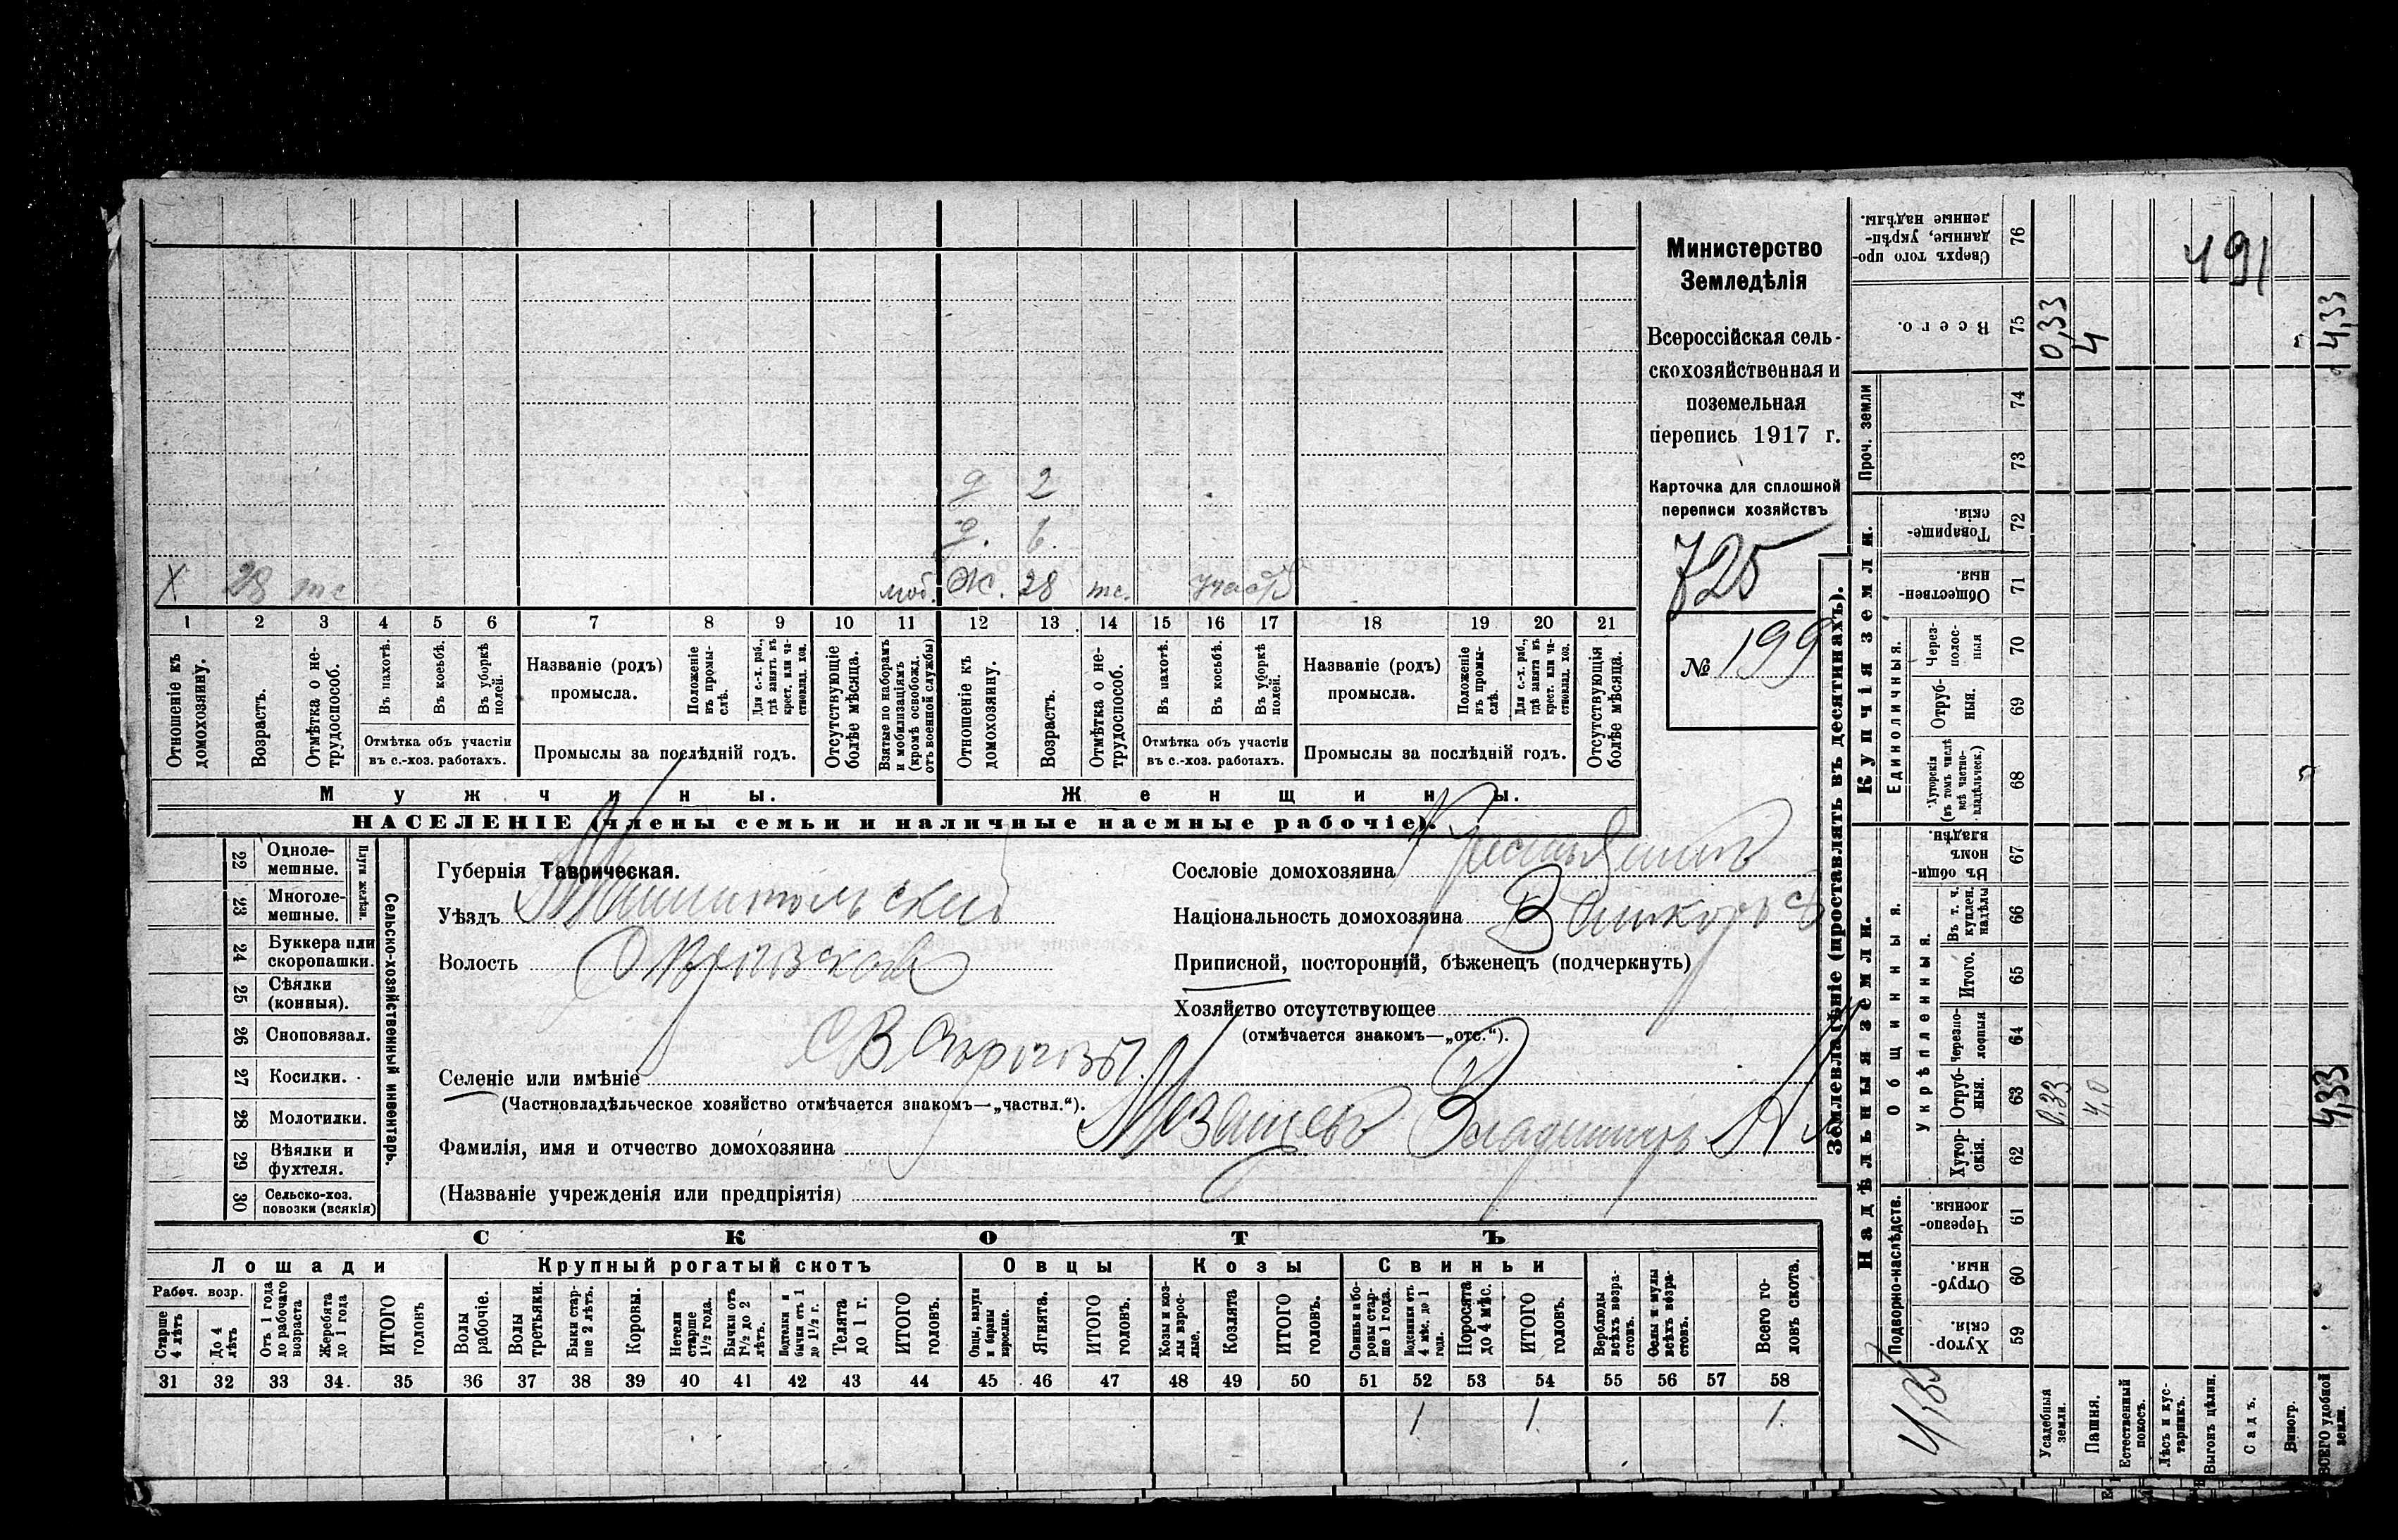 Министерство
Земледѣлія
Всероссійская сель-
скохозяйственная и
поземельная
перепись 1917 г.
Карточка для сплошной
переписи хозяйствъ
725
№ 199
д 2
д. 6.
Х 28 тс моб. Ж. 28 тс.
1 2 3 4 5 6 7 8 9 10 11 12 13 14 15 16 17 18 19 20 21
Отношеніе къ домохозяину.
Возрастъ.
Отмѣтка о не-трудоспособ.
Въ пахотѣ.
Въ косьбѣ.
Въ уборкѣ полей.
Отмѣтка объ участіи
въ с.-хоз. работахъ.
Названіе (родъ)
промысла.
Положеніе въ промы-слѣ.
Для с.-х. раб., гдѣ занятъ въ крест. или ча-стновлад. хоз.
Промыслы за послѣдній годъ.
Отсутствующіе болѣе мѣсяца.
Взятые по наборамъ и мобилизаціямъ (кромѣ освобожд. отъ военной службы)
Отношеніе къ домохозяину.
Возрастъ.
Отмѣтка о не-трудоспособ.
Въ пахотѣ.
Въ косьбѣ.
Въ уборкѣ полей.
Отмѣтка объ участіи
въ с.-хоз. работахъ.
Названіе (родъ)
промысла.
Положеніе въ промы-слѣ.
Для с.-х. раб., гдѣ занята въ крест. или ча-стновлад. хоз.
Промыслы за послѣдній годъ.
Отсутствующія болѣе мѣсяца.
Мужчины. Женщины.
НАСЕЛЕНІЕ (члены семьи и наличные наемные рабочіе).
Сельско-хозяйственный инвентарь.
Плуги желѣзн.
22 Однолемешные.
23 Многолемешные.
24 Буккера или скоропашки.
25 Сѣялки (конныя).
26 Сноповязал.
27 Косилки.
28 Молотилки.
29 Вѣялки и фухтеля.
30 Сельско-хоз. повозки (всякія)
Губернія Таврическая.
Уѣздъ
Волость
Селеніе или имѣніе
(Частновладѣльческое хозяйство отмѣчается знакомъ—„частвл.“).
Фамилія, имя и отчество домохозяина
(Названіе учрежденія или предпріятія)
Сословіе домохозяина
Національность домохозяина
Приписной, посторонній, бѣженецъ (подчеркнуть)
Хозяйство отсутствующее
(отмѣчается знакомъ—„отс.“).
СКОТЪ
Лошади Крупный рогатый скотъ Овцы Козы Свиньи
Рабоч. возр.
Старше 4 лѣтъ
До 4 лѣтъ
Отъ 1 года до рабочаго возраста
Жеребята до 1 года
ИТОГО головъ
Волы рабочіе.
Волы третьяки.
Быки стар-ше 2 лѣтъ.
Коровы.
Нетели старше 1½ года.
Бычки отъ 1½ до 2 лѣтъ.
Подтелки и бычки отъ 1 до 1½ г.
Телята до 1 г.
ИТОГО головъ.
Овцы, валухи и бараны взрослые.
Ягнята.
ИТОГО головъ.
Козы и коз-лы взрос-лые.
Козлята
ИТОГО головъ.
Свиньи и бо-ровы стар-ше 1 года.
Подсвинки отъ 4 мѣс. до 1 года.
Поросята до 4 мѣс.
ИТОГО головъ.
Верблюды всѣхъ возра-стовъ.
Ослы и мулы всѣхъ возра-стовъ.
Всего го-ловъ скота.
31 32 33 34. 35 36 37 38 39 40 41 42 43 44 45 46 47 48 49 50 51 52 53 54 55 56 57 58
1 1. 1.
Землевладѣніе (проставлять въ десятинахъ).
Купчія земли.
Надѣльныя земли.
76 Сверхъ того про-данные, укрѣп-ленные надѣлы. 491
75 Всего. 0,33 4 4,33
Проч. земли
74
73
72 Товарище-скія.
71 Обществен-ныя.
Единоличныя.
70 Через-полос-ныя
69 Отруб-ныя.
68 Хуторскія (въ томъ числѣ всѣ частно-владѣльческ.)
Общинныя.
67 Въ общи-номъ владѣн.
Укрѣпленныя.
66 Въ т. ч. куплен. надѣлы
65 Итого.
64 Черезпо-лосныя
63 Отруб-ныя. 0,33 4,0 4,33
62 Хутор-скія.
Подворно-наслѣдств.
61 Черезпо-лосныя.
60 Отруб-ныя.
59 Хутор-скія.
Усадебныя земли.
Пашня.
Естественный покосъ.
Лѣсъ и кус-тарникъ.
Выгонъ цѣлин.
Садъ.
Виногр.
ВСЕГО удобной земли.